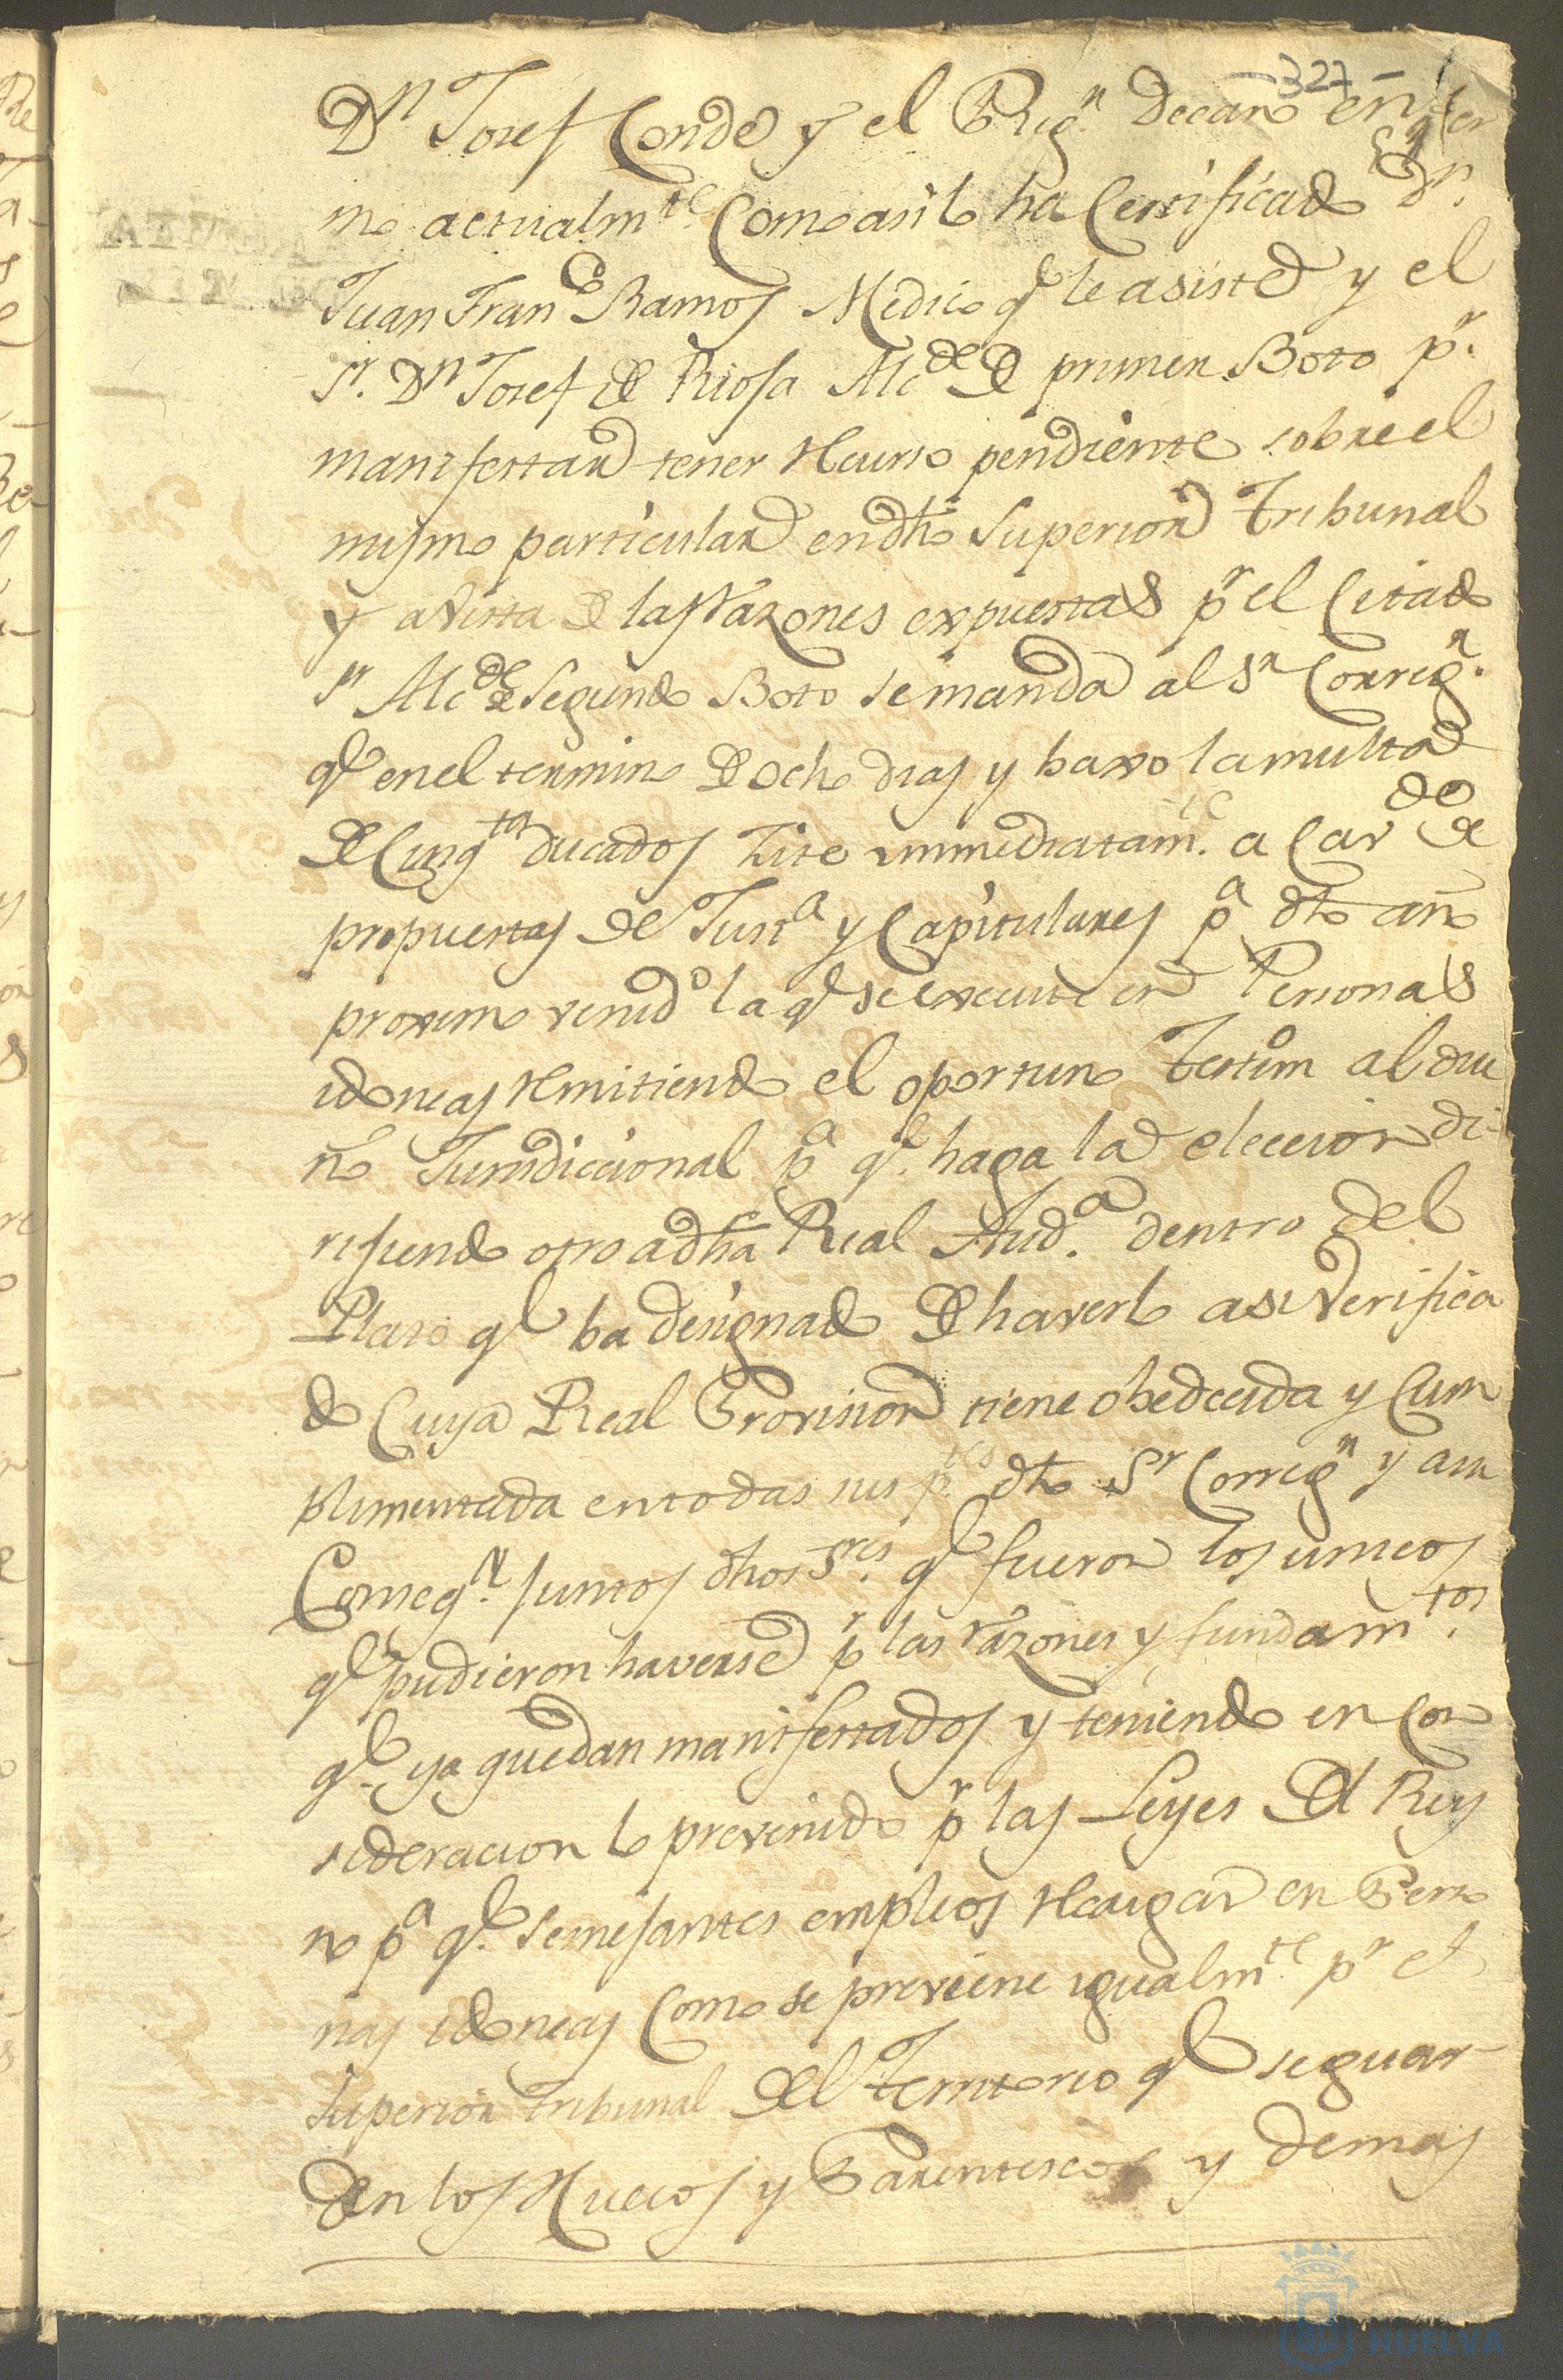 327
Dn Josef Conde y el Regn Decano enfer
mo actualmte Como asi lo ha Certificado Dn.
Juan Franco Ramos Medico qe le asiste y el
Sr. Dn Josef de Riosa Alcde de primer Boto pr.
manifestar tener Recurso pendiente sobre el
mismo particular en dho Superior Tribunal
y a vista de las razones expuestas pr el Citado
Sr Alcde de Segundo Boto se manda al Sr Corregr.
qe en el termino de ocho dias y baxo la multa
de Cinqta ducados Zite immediatamte. a Cavdo de
propuestas de Justa y Capitulares pa dho año
proximo venido la qe se execute en Personas
idoneas Remitiendo el oportuno Testimo al due
ño Jurisdiccional pa qe. haga la eleccion di-
rijiendo otro a dha Real Auda. dentro del
Plaso qe ba designado de haverlo asi Verifica
do Cuya Real Provision tiene obedecida y Cum
plimentada en todas sus ptes dho Sr Corregr y a su
Conseqa. juntos dhos Sres. qe fueron los unicos
qe pudieron haverse pr las razones y fundamtos.
qe ya quedan manifestados y teniendo en Con
sideracion lo prevenido pr las Leyes del Rey
no pa qe. Semejantes empleos Recaigan en Perso
nas idoneas Como se previene igualmte pr el
Superior Tribunal del Territorio qe se guar
den los Huecos y Parentescos y demas
HUELVA